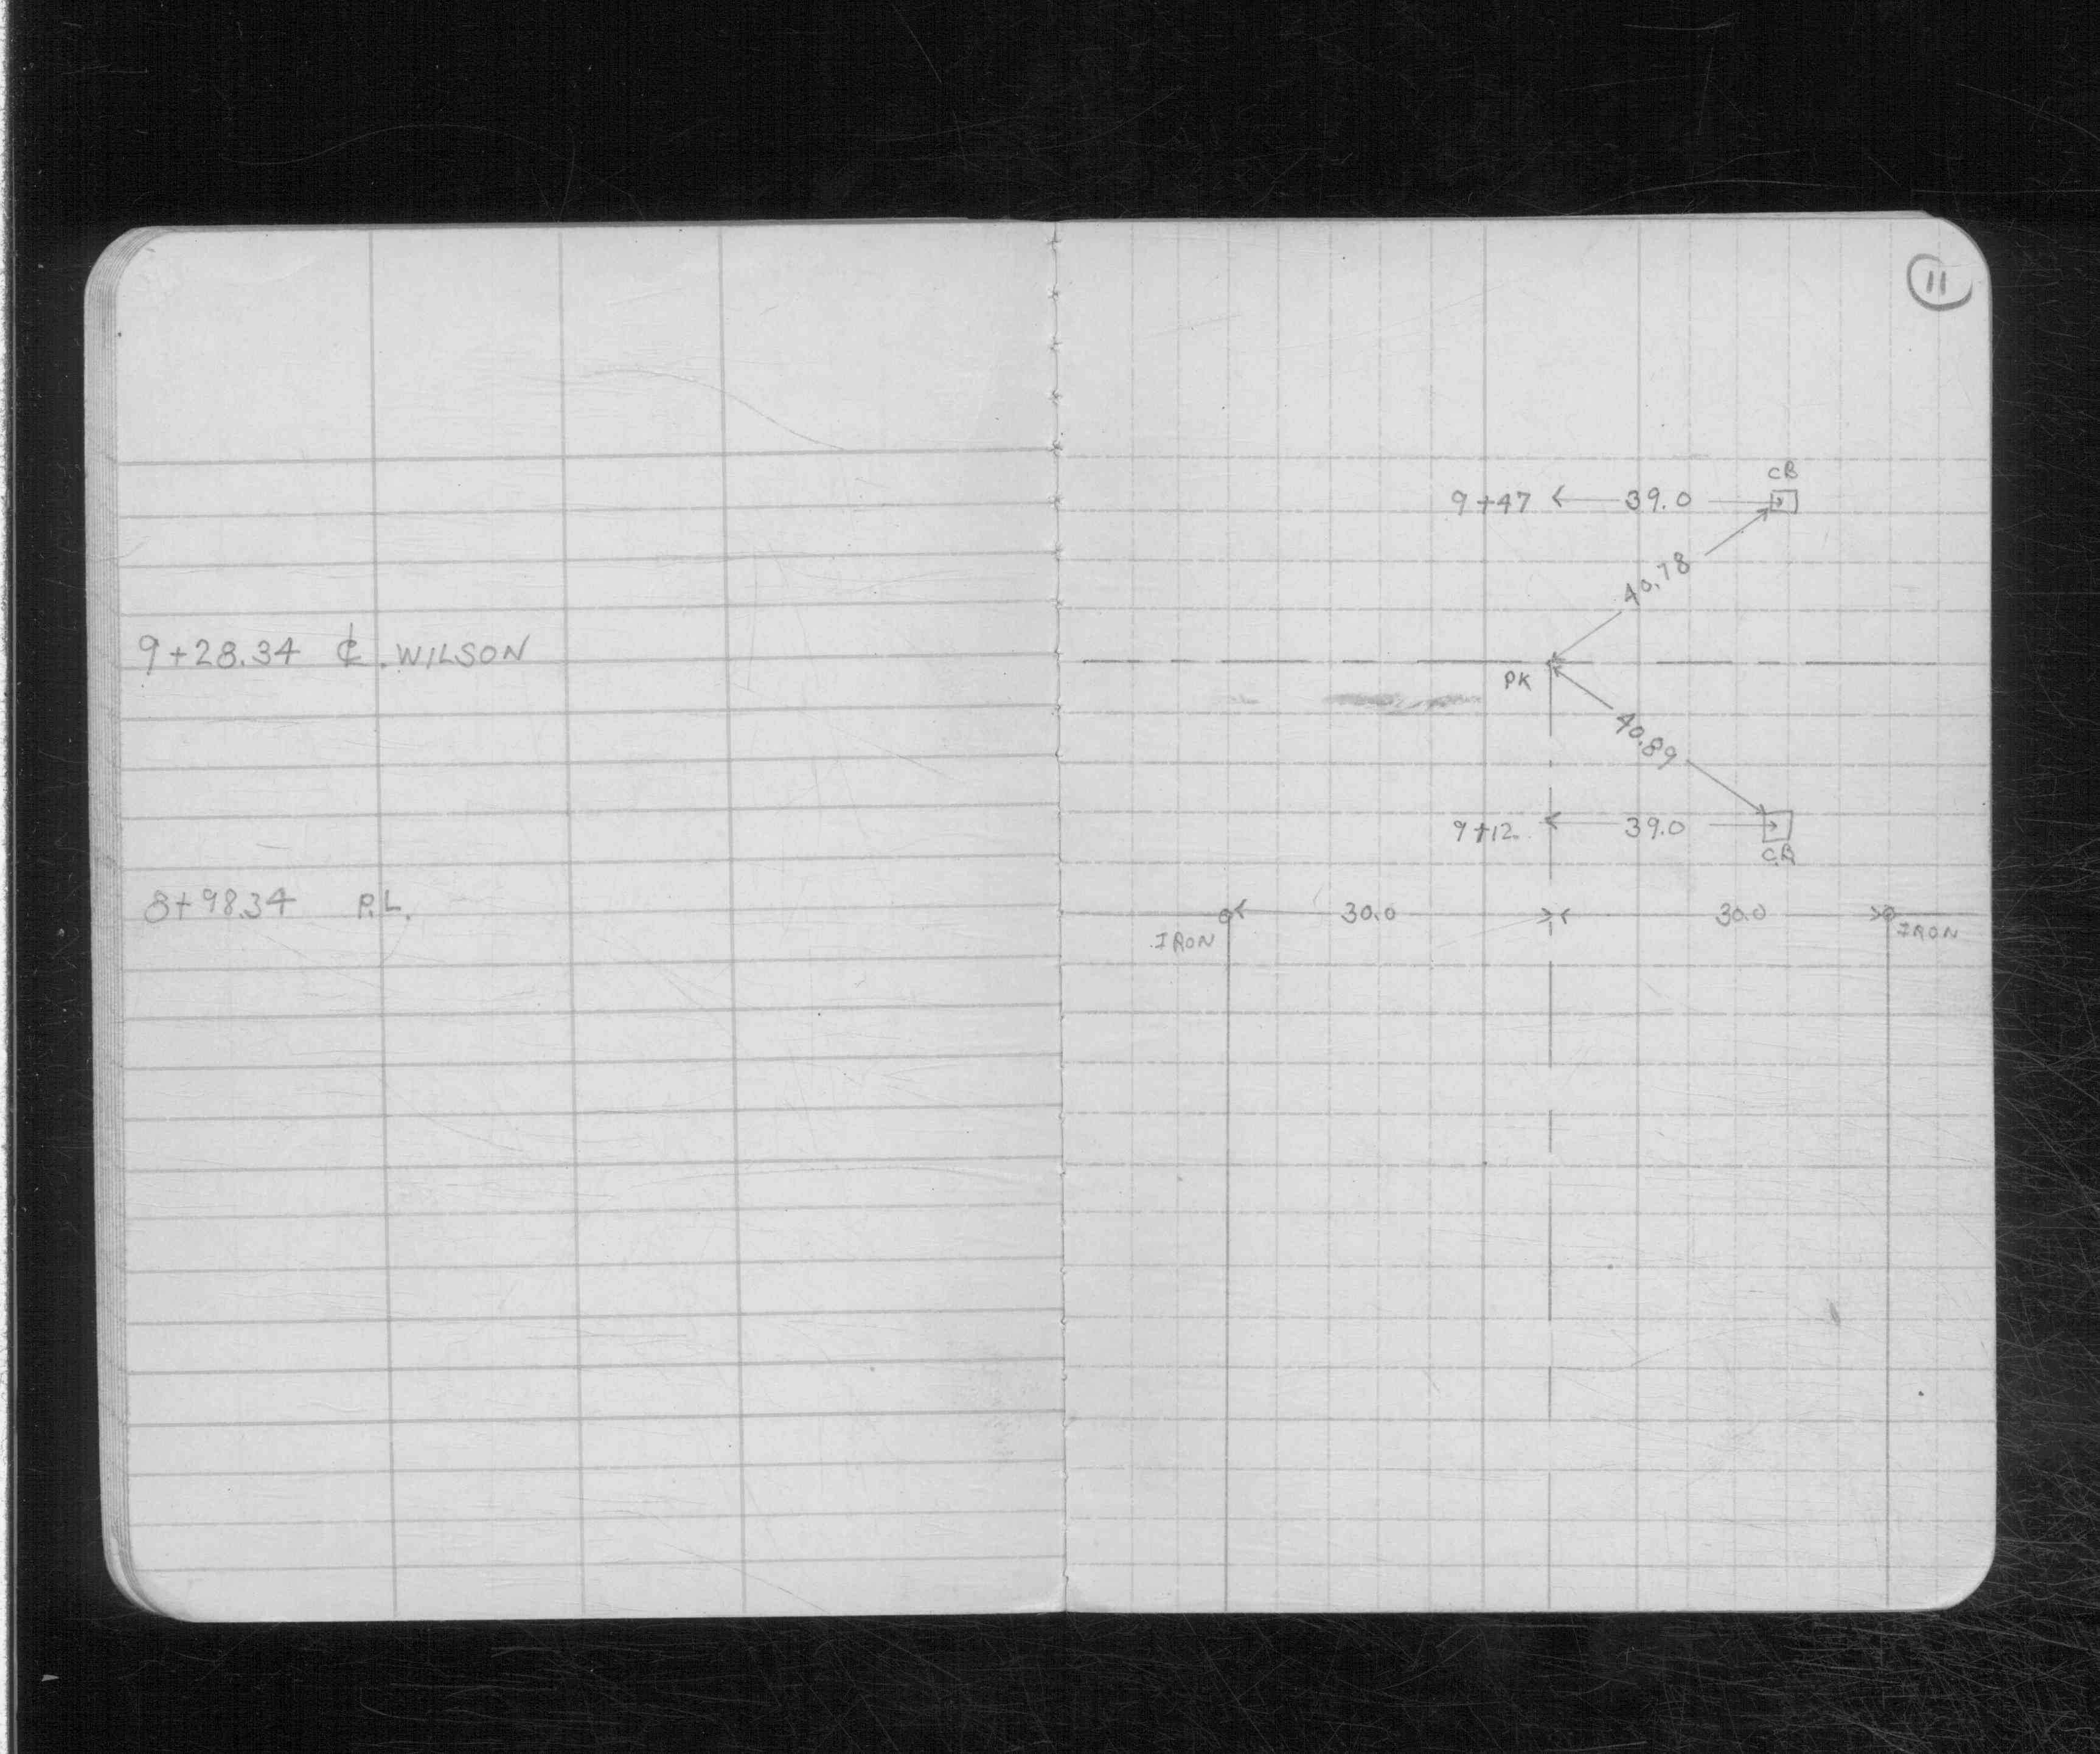 11
CB
9+47 39.0
40.78
9+28.34 ȼ. WILSON
PK
40.89
9+12 39.0
CB
8+98.34 P.L.
30.0 30.0
IRON IRON